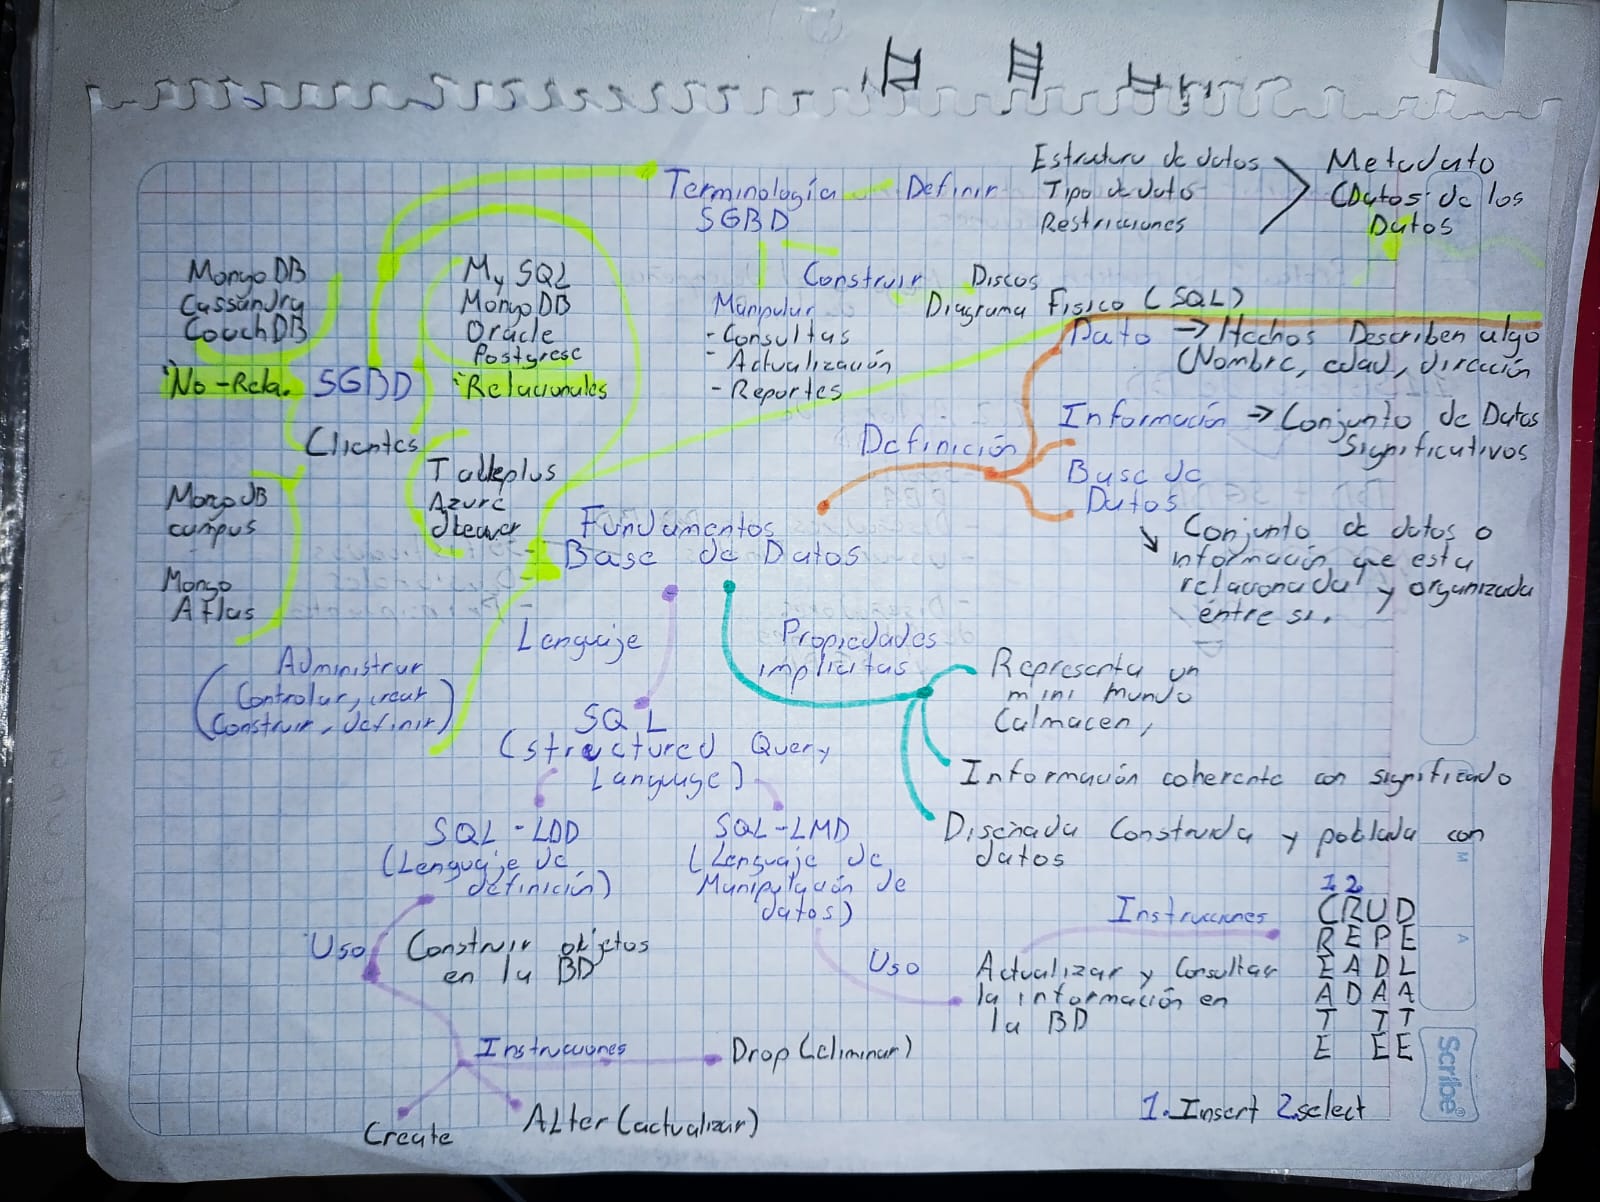 Terminología
SGBD
Definir
Estructura de datos
Tipo de dato
Restricciones
Metadato
(Datos de los
Datos
Construir
Discos
Diagrama Fisico (SQL)
Manipular
-Consultas
- Actualización
- Reportes
Mongo DB
Cassandra
CouchDB
"No-Rela.
SGBD
My SQL
MongoDB
Oracle
Postgresc
"Relacionales
Clientes
Tableplus
Azure
dbeaver
MongoDB
cumpus
Mongo
Atlas
Administrar
(Controlar, crear
Construir, definir)
Dato → Hechos Describen algo
(Nombre, edad, dirección
Definición
Información → Conjunto de Datos
Significativos
Base de
Datos
↘ Conjunto de datos o
información que esta
relacionada y organizada
entre si.
Fundamentos
Base de Datos
Lenguaje
Propiedades
implicitas
Representa un
mini mundo
Calmacen,
Información coherente con significado
Diseñada Construida y poblada con
datos
SQL
(structured Query
Language)
SQL-LDD
(Lenguaje de
definición)
SQL-LMD
(Lenguaje de
Manipulación de
datos)
Uso
Construir objetos
en la BD
Instrucciones
Drop (eliminar)
Create
Alter (actualizar)
Uso
Actualizar y Consultar
la información en
la BD
Instrucciones
1 2
CRUD
REPE
EADL
ADAA
T TT
E EE
1.Insert 2select
Scribe®
M
A